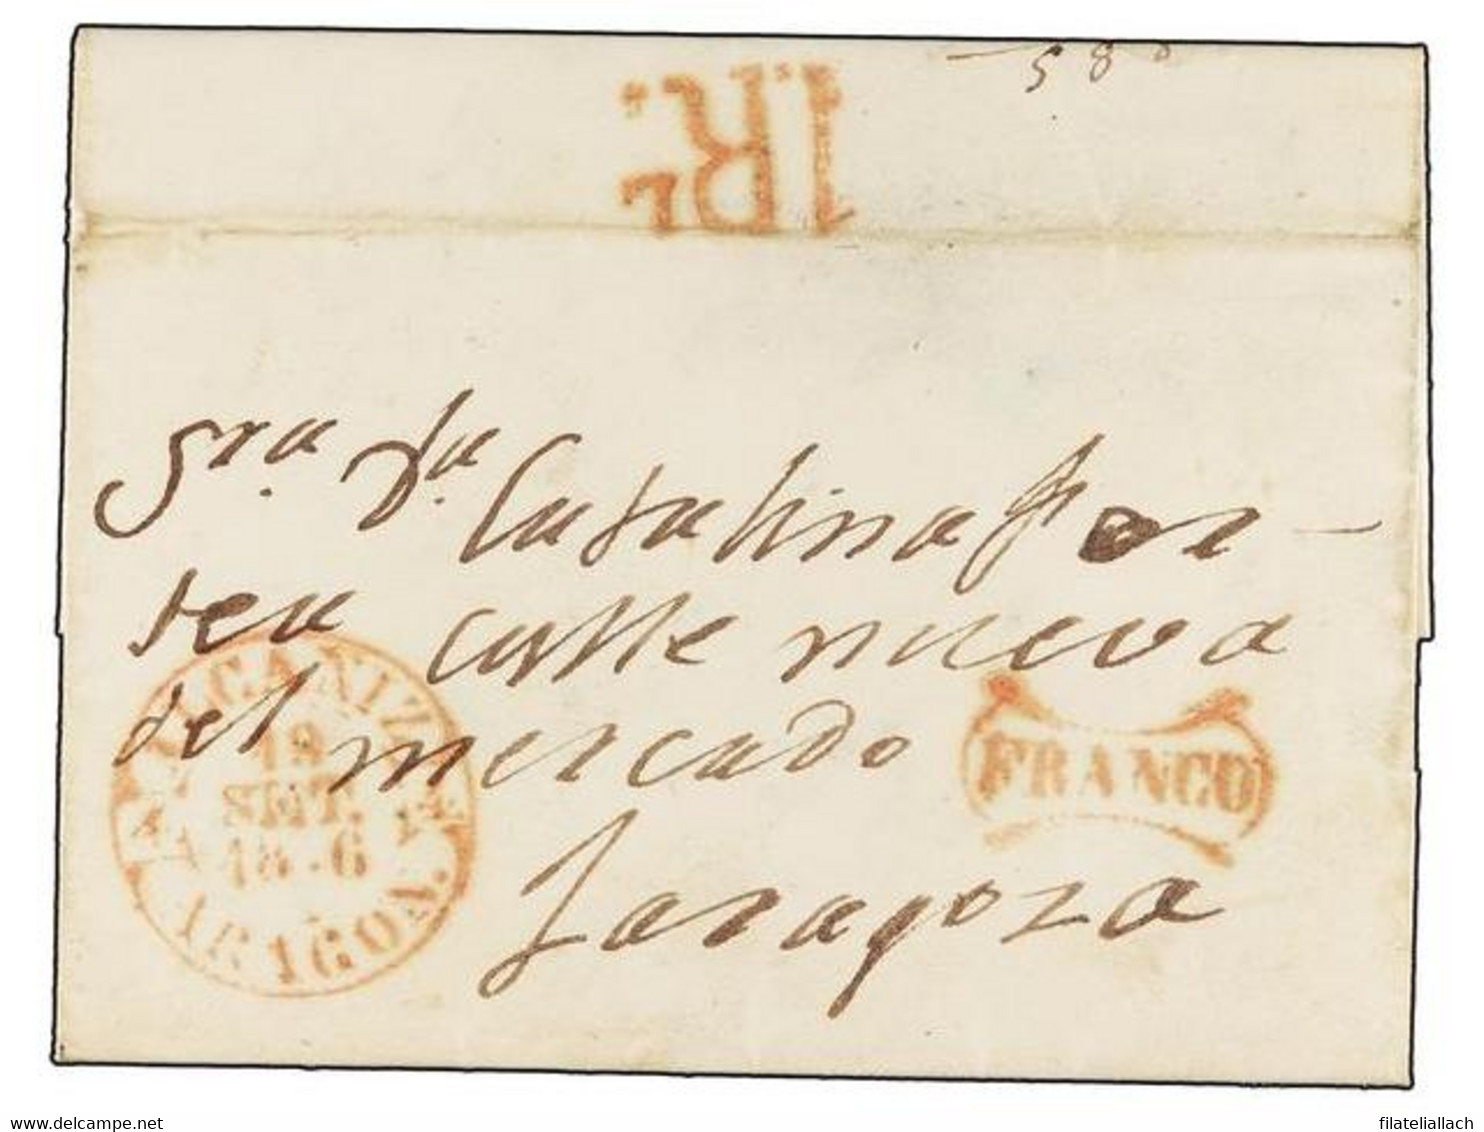 58
1RL
R.
Sra. Da. Catalina For-
tea calle nueva
del mercado
Zaragoza
ALCAÑIZ
19
SET.
18 6
ARAGON.
FRANCO
delcampe.net
filateliallach